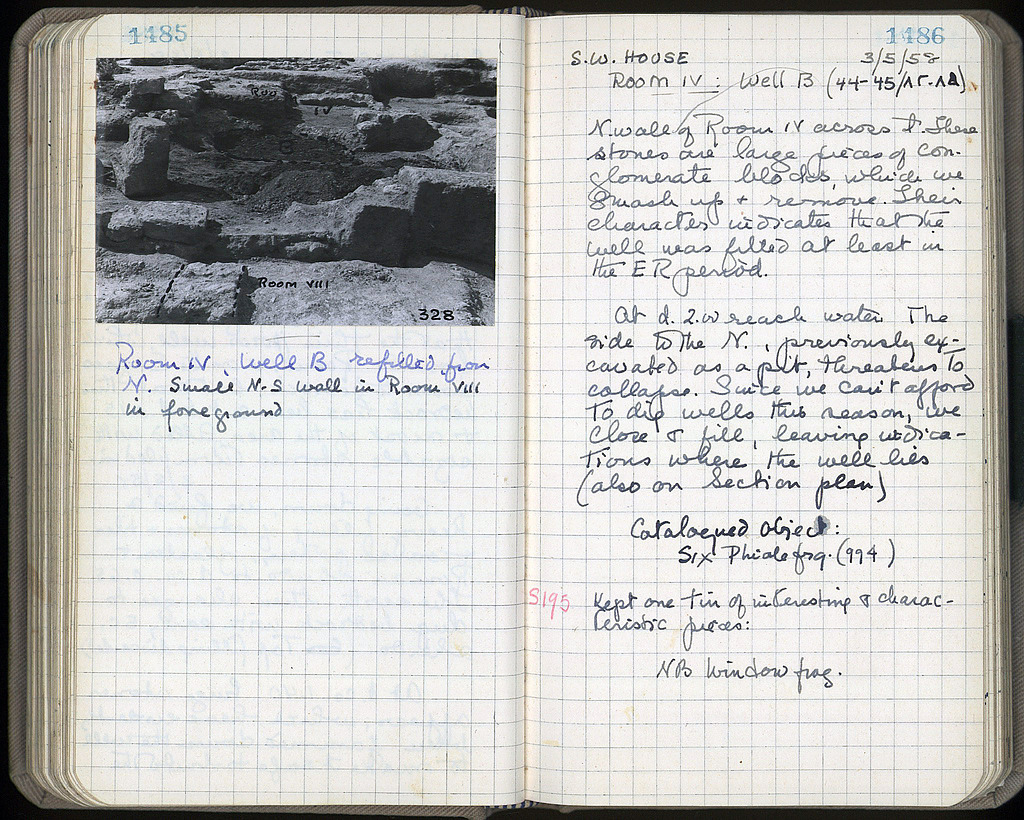 1485
Roo
IV
B
Room VIII
328
Room IV, Well B refilled, from
N. Small N-S wall in Room VIII
in foreground
1486
S.W. HOUSE 3/5/58
Room IV: Well B (44-45/ΛΓ-ΛΔ)
N. wall of Room IV across it. These
stones are large pieces of con-
glomerate blocks, which we
smash up + remove. Their
character indicates that the
well was filled at least in
the ER period.
At d. 2.00 reach water. The
side to the N., previously ex-
cavated as a pit, threatens to
collapse. Since we can't afford
to dig wells this season, we
close & fill, leaving indica-
tions where the well lies
(also on Section plan)
Catalogued Object:
Six Phiale frg. (994)
S195 Kept one tin of interesting & charac-
teristic pieces:
NB Window frag.